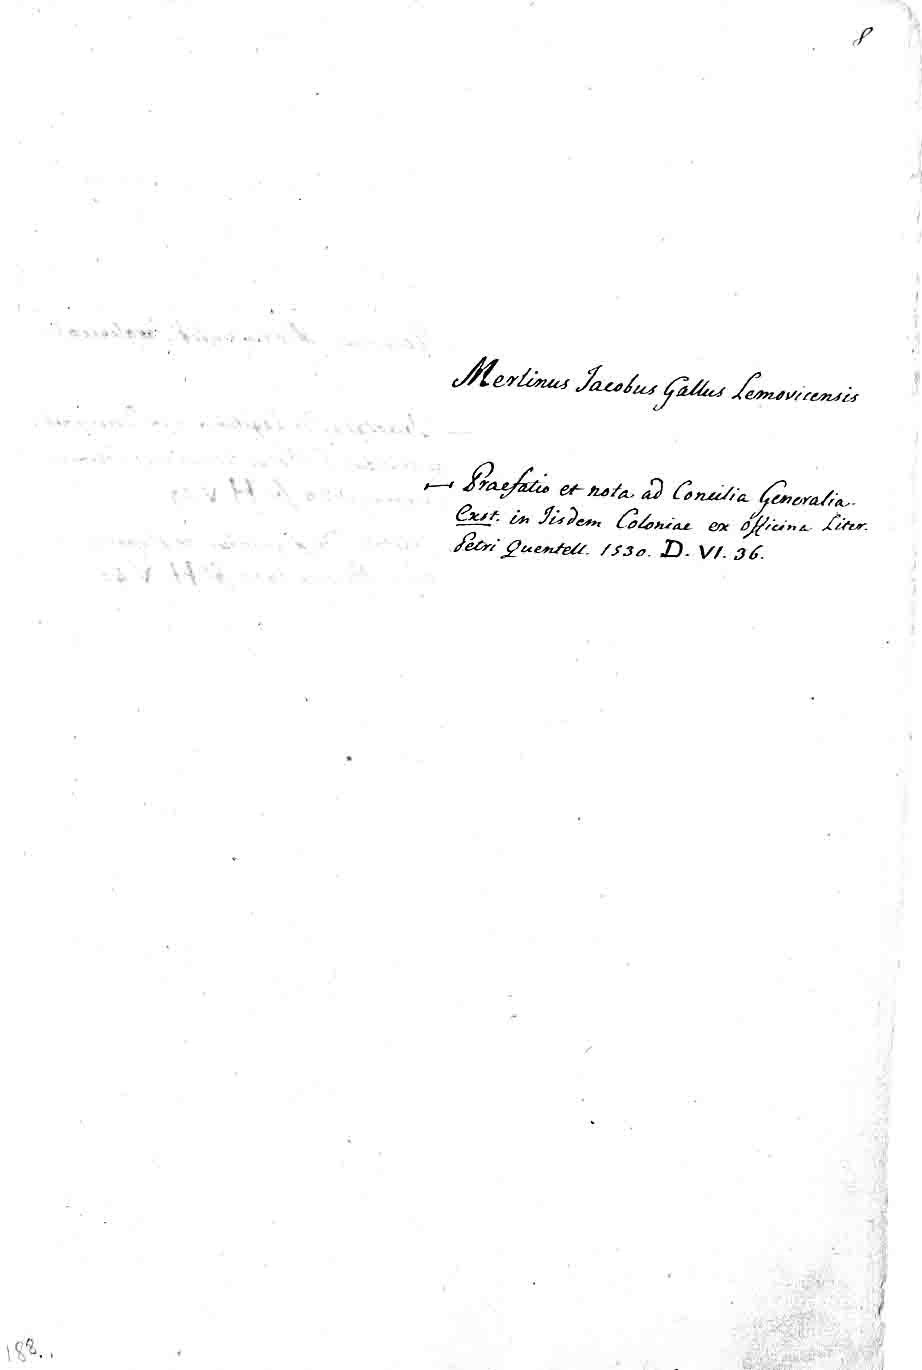 8
Merlinus Jacobus Gallus Lemovicensis
Praefatio et nota ad Concilia Generalia.
Exst. in Iisdem Coloniae ex officina Liter.
Petri Quentell. 1530. D. VI. 36.
188..